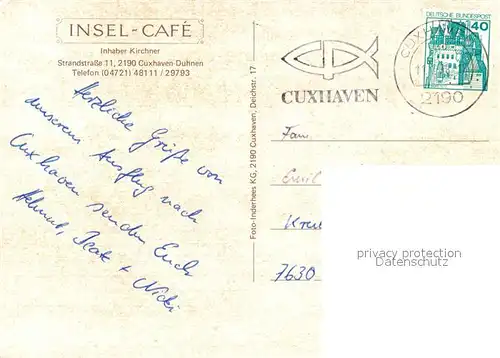 INSEL-CAFÉ
Inhaber Kirchner
Strandstraße 11, 2190 Cuxhaven-Duhnen
Telefon (04721) 48111 / 29793
Herzliche Grüße von
unserem Ausflug nach
Cuxhaven senden Euch
Helmut, Beate + Nicki
Foto-Inderhees KG, 2190 Cuxhaven, Deichstr. 17
CUXHAVEN
CUXHAVEN
2190
DEUTSCHE BUNDESPOST
40
Fam.
Emil
7630
privacy protection
Datenschutz